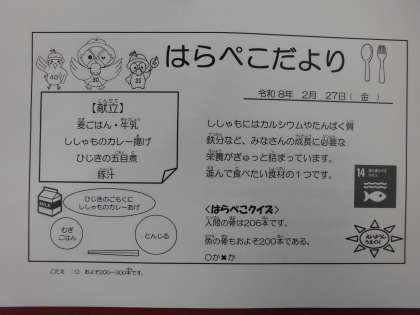 はらぺこだより
令和8年 2月 27日( 金 )
【献立】
麦ごはん・牛乳
ししゃものカレー揚げ
ひじきの五目煮
豚汁
ししゃもにはカルシウムやたんぱく質
鉄分など、みなさんの成長に必要な
栄養がぎゅっと詰まっています。
進んで食べたい食材の1つです。
14
ひじきのごもくに
ししゃものカレーあげ
むぎ
ごはん
とんじる
<はらぺこクイズ>
人間の骨は206本です。
魚の骨もおよそ200本である。
〇か✖か
こたえ :〇 およそ200~300本です。